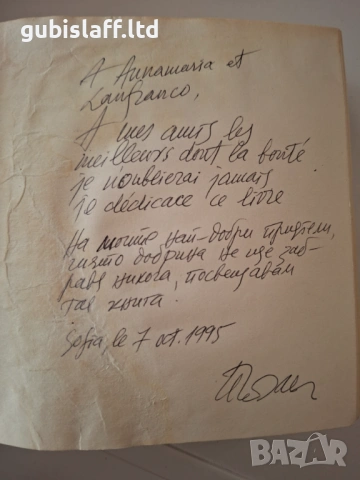 gubislaff.ltd
A Annamaria et
Lanfranco,
A mes amis les
meilleurs dont la bonté
je n'oublierai jamais
je dédicace ce livre
На моите най-добри приятели,
чиято доброта не ще заб-
равя никога, посвещавам
таз книга.
Sofia, le 7 oct. 1995
BAZAR